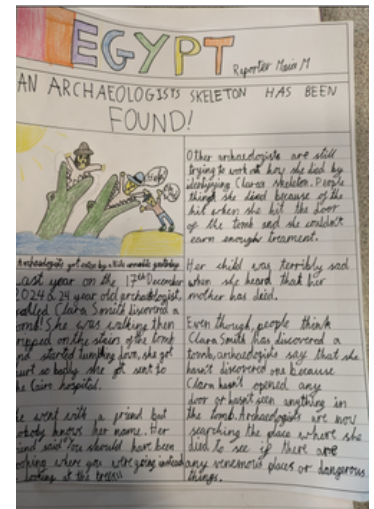 EGYPT
Reporter Maia M
AN ARCHAEOLOGISTS SKELETON HAS BEEN
FOUND!
Archaeologist got eaten by a Nile crocodile yesterday
Last year on the 17th December
2024 a 24 year old archaeologist,
called Clara Smith discovered a
tomb! She was walking then
tripped on the stairs of the tomb
and started tumbling down, she got
hurt so badly she got sent to
the Cairo hospital.
She went with a friend but
nobody knows her name. Her
friend said "You should have been
watching where you were going instead
looking at the
Other archaeologists are still
trying to work out how she died by
identifying Claras skeleton. People
think she died because of the
hit when she hit the door
of the tomb and she couldn't
earn enough treament.
Her child was terribly sad
when she heard that her
mother has died.
Even though, people think
Clara Smith has discovered a
tomb, archaeologists say that she
hasn't discovered one because
Clara hasn't opened any
door or hasn't seen anything in
the tomb. Archaeologists are now
searching the place where she
died to see if there are
any venemous places or dangerous
things.